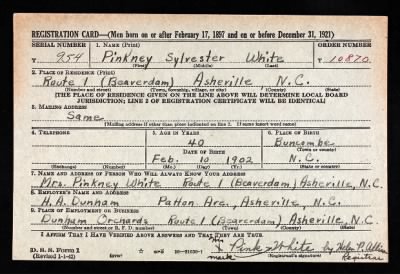 REGISTRATION CARD—(Men born on or after February 17, 1897 and on or before December 31, 1921)
SERIAL NUMBER 1. NAME (Print) ORDER NUMBER
T 954 Pinkney Sylvester White T 10870
(First) (Middle) (Last)
2. PLACE OF RESIDENCE (Print)
Route 1 (Beaverdam) Asheville N.C.
(Number and street) (Town, township, village, or city) (County) (State)
[THE PLACE OF RESIDENCE GIVEN ON THE LINE ABOVE WILL DETERMINE LOCAL BOARD
JURISDICTION; LINE 2 OF REGISTRATION CERTIFICATE WILL BE IDENTICAL]
3. MAILING ADDRESS
Same
[Mailing address if other than place indicated on line 2. If same insert word same]
4. TELEPHONE 5. AGE IN YEARS 6. PLACE OF BIRTH
40 Buncombe
DATE OF BIRTH (Town or county)
Feb. 10 1902 N.C.
(Exchange) (Number) (Mo.) (Day) (Yr.) (State or country)
7. NAME AND ADDRESS OF PERSON WHO WILL ALWAYS KNOW YOUR ADDRESS
Mrs. Pinkney White Route 1 (Beaverdam) Asheville, N.C.
8. EMPLOYER'S NAME AND ADDRESS
H.A. Dunham Patton Ave., Asheville, N.C.
9. PLACE OF EMPLOYMENT OR BUSINESS
Dunham Orchards Route 1 (Beaverdam) Asheville, N.C.
(Number and street or R. F. D. number) (Town) (County) (State)
I AFFIRM THAT I HAVE VERIFIED ABOVE ANSWERS AND THAT THEY ARE TRUE.
D. S. S. Form 1 Pink x White by Helen P.
(Revised 1-1-42) (over) mark (Registrant's signature) Registrar